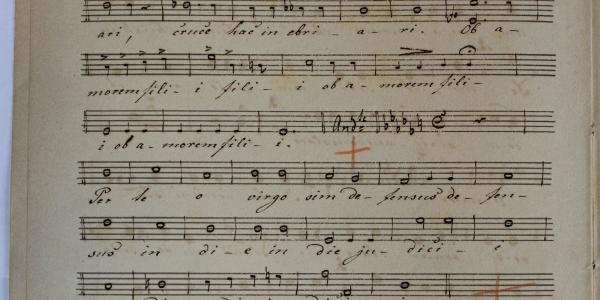 ari, cruce hac in ebri - a - ri. Ob a-
morem fili - i fili - i ob a - morem fili -
i ob a - morem fili - i. And.te
Per te o virgo sim de - fensus de - fen-
sus in di - e in die ju - dici - i